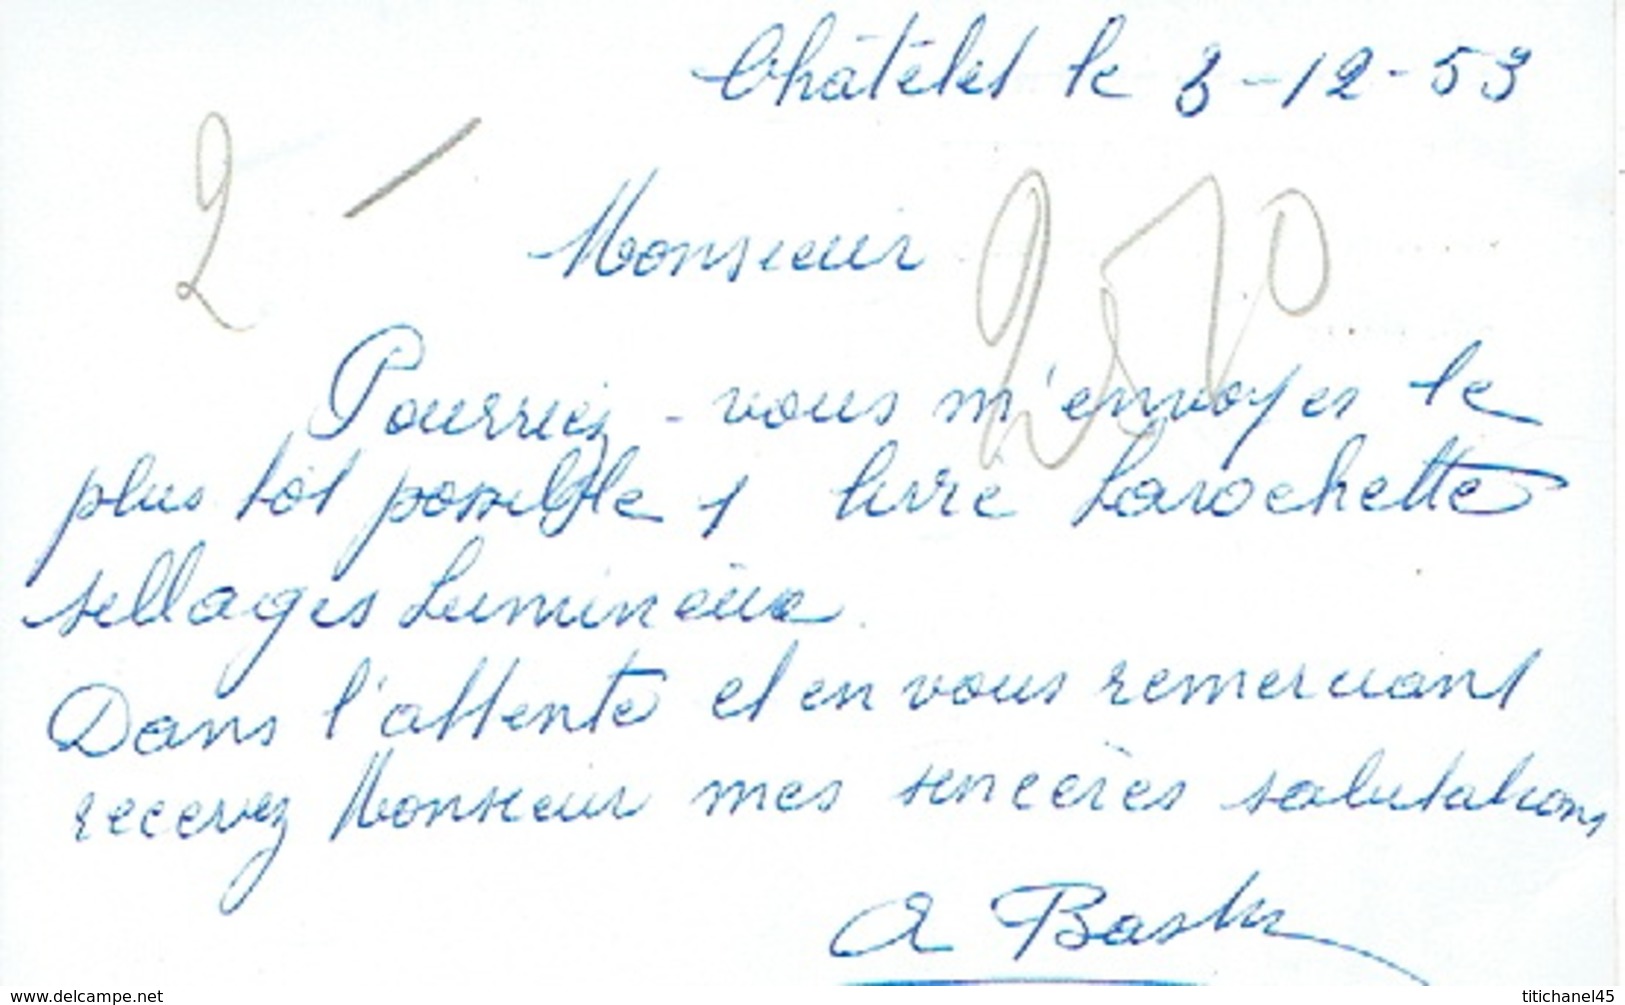 Châtelet le 3-12-53
2 -
Monsieur
250
Pourriez-vous m'envoyer le
plus tôt possible 1 livre Larochette
sillages Lumineux.
Dans l'attente et en vous remerciant
recevez Monsieur mes sincères salutations
A
www.delcampe.net
titichanel45